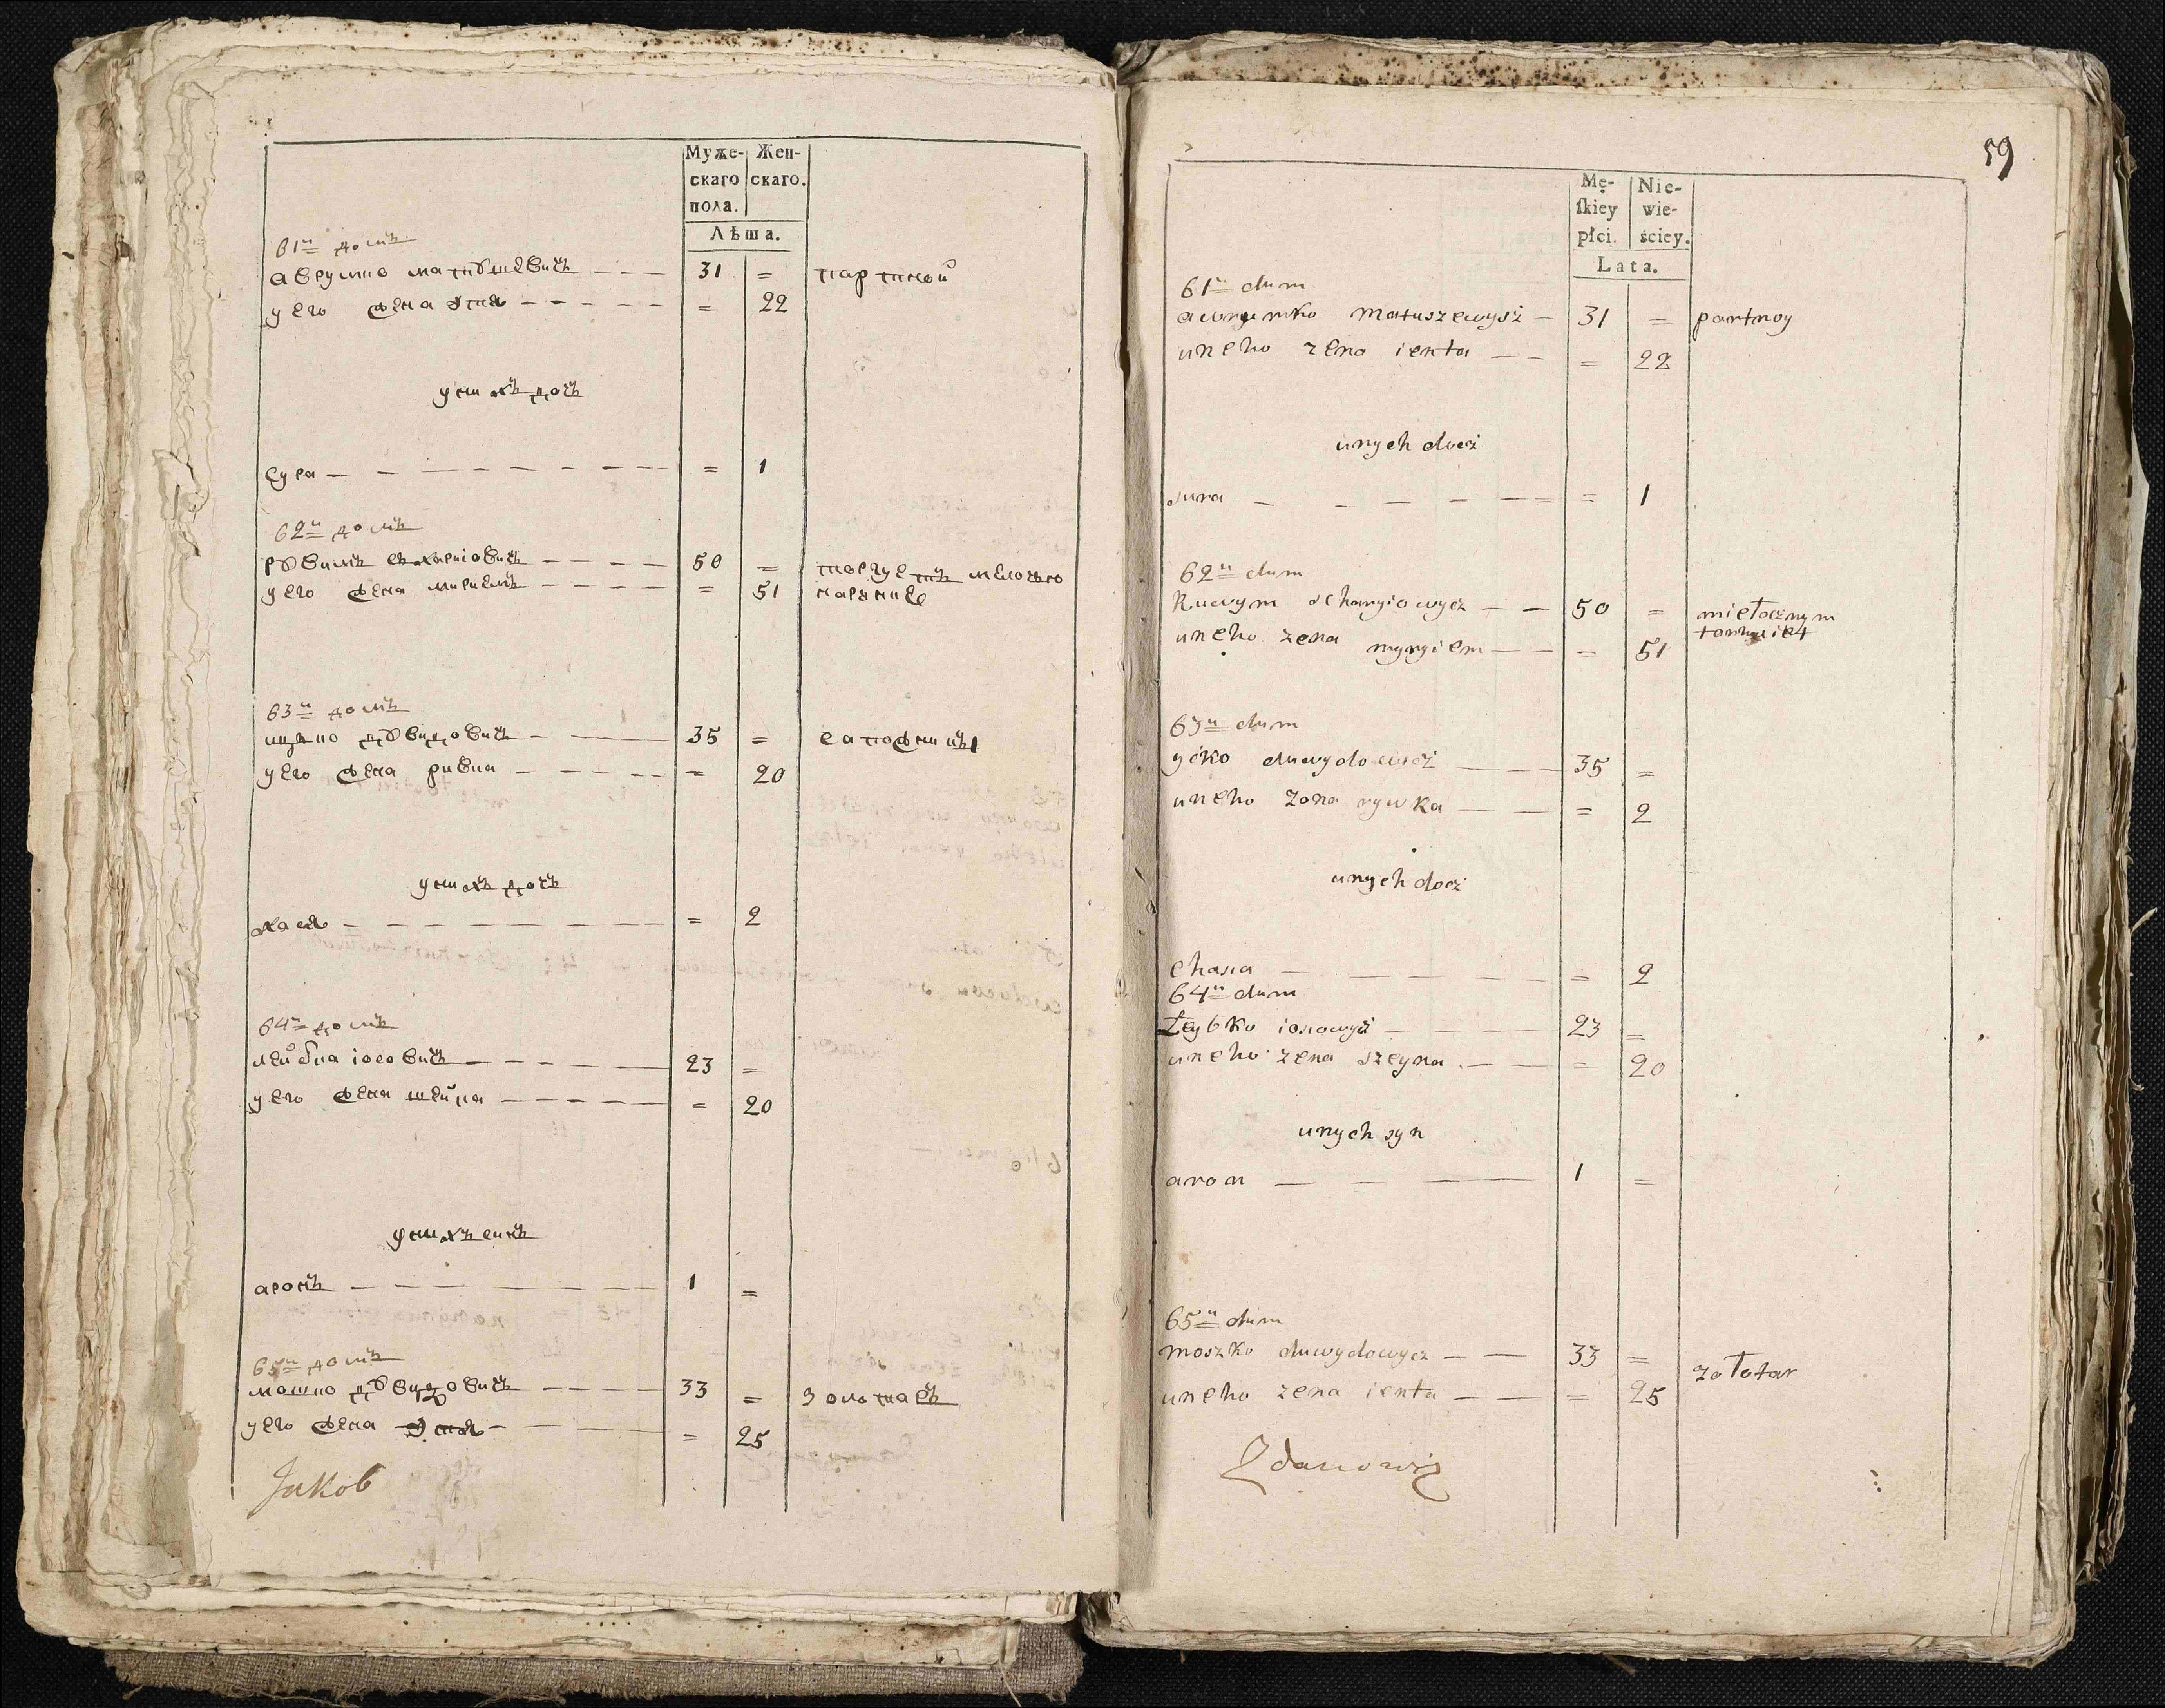 Муже-
скаго
пола.
Жен-
скаго.
Лѣта.
61й домъ
аврумко матушевичъ 31 = партной
у его жена ента = 22
у нихъ дочъ
сура = 1
62й домъ
рувимъ схаріовичъ 50 = торгуетъ мелочью
у его жена миремъ = 51
63й домъ
ицко дувидовичъ 35 = сапожникъ
у его жена ривка = 20
у нихъ дочъ
хася = 2
64й домъ
лейбка іосовичъ 23 =
у его жена шейна = 20
у нихъ синъ
аронъ 1 =
65й домъ
мошко дувидовичъ 33 = золотаръ
у его жена = 25
Jakob
59
Mę-
ſkiey
płci.
Nie-
wie-
ściey.
Lata.
61й dum
awrumko matuszewysz 31 = partnoy
uneho zena ienta = 22
unych docz
sura = 1
62й dum
Ruwym schargiowycz 50 = miełocznym
tarhuiet
uneho zena myryiem = 51
63й dum
ycko duwydowicz 35 =
uneho zona rywka = 2
unych docz
chasia = 2
64й dum
Leybko iosowycz 23 =
uneho zena szeyna = 20
unych syn
aron 1 =
65й dum
moszko duwydowycz 33 = zołotar
uneho zena ienta = 25
Zdanowiz